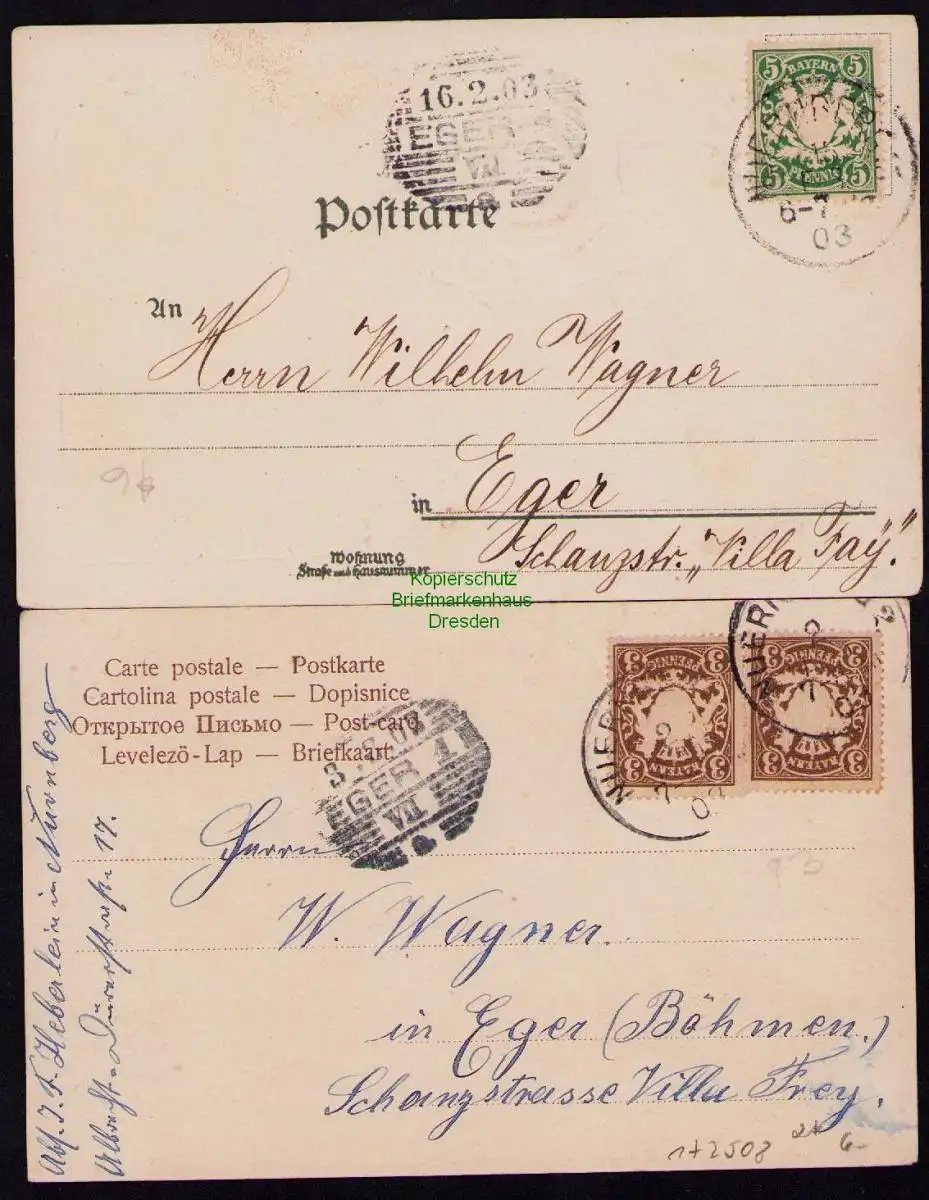 16.2.03
EGER
VII
5 BAYERN 5
5 PFENNIG 5
6-7
03
Postkarte
An Herrn Wilhelm Wagner
in Eger
Wohnung
Straße und Hausnummer
Schanzstr. „Villa Fay".
Kopierschutz
Briefmarkenhaus
Dresden
Carte postale — Postkarte
Cartolina postale — Dopisnice
Открытое Письмо — Post-card
Levelező-Lap — Briefkaart
EGER 1
VII
3 PFENNIG 3
3 BAYERN 3
3 PFENNIG 3
3 BAYERN 3
Herrn
W. Wagner.
in Eger (Böhmen.)
Schanzstrasse Villa Frey.
Abs. J. F. Heberlein in Nürnberg
Albrecht-Dürerstraße 17.